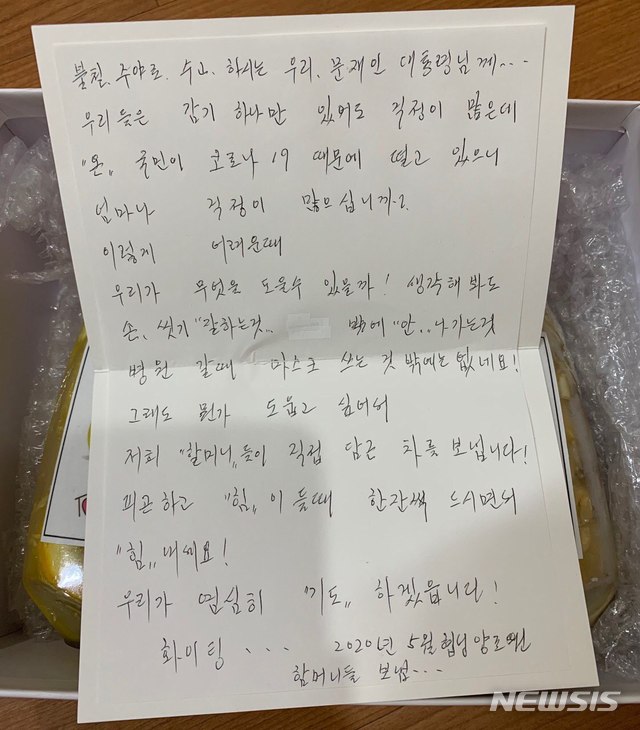 불철, 주야로, 수고, 하시는 우리, 문재인 대통령님께...
우리들은 감기 하나만 있어도 걱정이 많은데
"온„ 국민이 코로나 19 때문에 떨고 있으니
얼마나 걱정이 많으십니까?
이렇게 어려운때
우리가 무엇을 도울수 있을까! 생각해봐도
손, 씻기 "잘하는것.. 밖에 "안.., 나가는것
병원 갈때 마스크 쓰는 것 밖에는 없네요!
그래도 뭔가 돕고 싶어서
저희 "할머니„들이 직접 담근 차를 보냅니다!
피곤하고 "힘„이 들때 한잔씩 드시면서
"힘„ 내세요!
우리가 열심히 "기도„ 하겠읍니다!
화이팅 ... 2020년 5월 협성양로원
할머니들 보냄...
NEWSIS